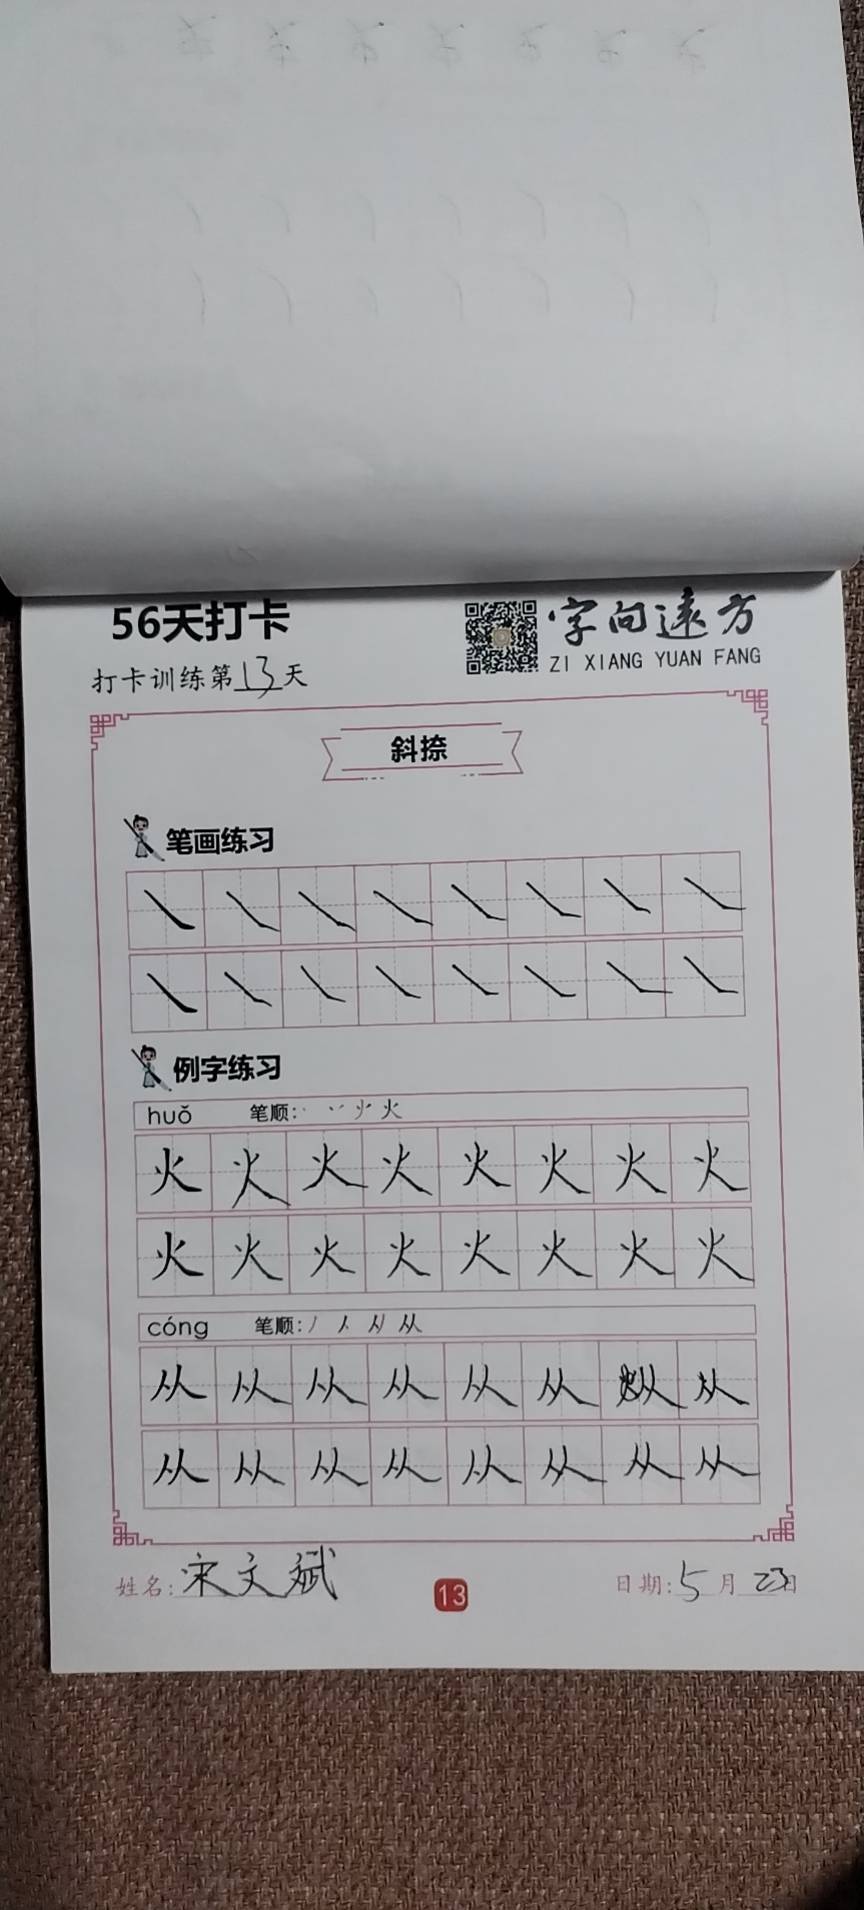 56天打卡
字向远方
ZI XIANG YUAN FANG
打卡训练第13天
斜捺
笔画练习
例字练习
huǒ 笔顺: 火
火 火 火 火 火 火 火 火
火 火 火 火 火 火 火 火
cóng 笔顺: 丿 人 从
从 从 从 从 从 从 从
从 从 从 从 从 从 从 从
姓名: 宋文斌
13
日期: 5月23日